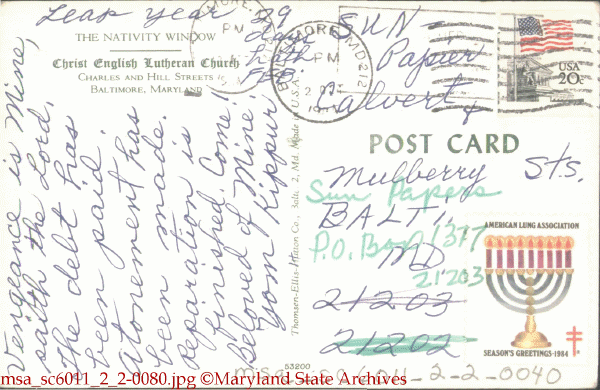 Leap year 29
days
hath
FEB.
THE NATIVITY WINDOW
Christ English Lutheran Church
CHARLES AND HILL STREETS
BALTIMORE, MARYLAND
Vengeance is Mine,
saith the Lord.
The debt has
been paid.
Atonement has
been made.
Reparation is
finished. Come!
Beloved of Mine
Yom Kippur
Thomsen-Ellis-Hutton Co., Balto. 2, Md. Made in U.S.A.
53200
BALTIMORE, MD 212
PM
PM
SUN
Papier
Calvert &
USA
20c
POST CARD
Mulberry Sts.
Sun Papers
BALTI.
P.O. Box 1377
MD
21203
21203
21202
AMERICAN LUNG ASSOCIATION
SEASON'S GREETINGS-1984
msa sc 6011-2-2-0040
msa_sc6011_2_2-0080.jpg ©Maryland State Archives